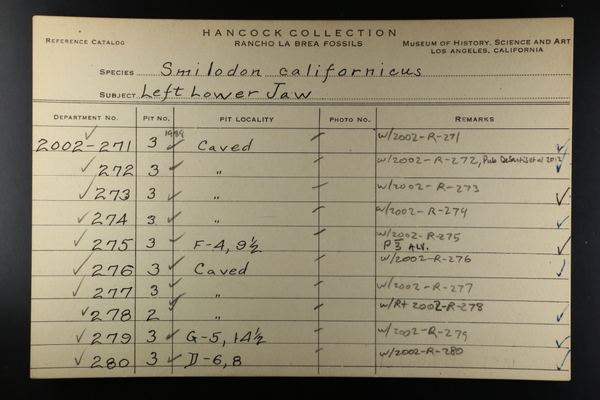 HANCOCK COLLECTION
REFERENCE CATALOG RANCHO LA BREA FOSSILS MUSEUM OF HISTORY, SCIENCE AND ART
LOS ANGELES, CALIFORNIA
SPECIES Smilodon californicus
SUBJECT Left Lower Jaw
DEPARTMENT NO. PIT NO. PIT LOCALITY PHOTO NO. REMARKS
2002-271 3 1989 Caved w/2002-R-271
272 3 " w/2002-R-272, Pub. DeSantis et al 2012
273 3 " w/2002-R-273
274 3 " w/2002-R-274
275 3 F-4, 9½ w/2002-R-275
P3 ALV.
276 3 Caved w/2002-R-276
277 3 " w/2002-R-277
278 2 " w/Rt 2002-R-278
279 3 G-5, 14½ w/2002-R-279
280 3 D-6, 8 w/2002-R-280